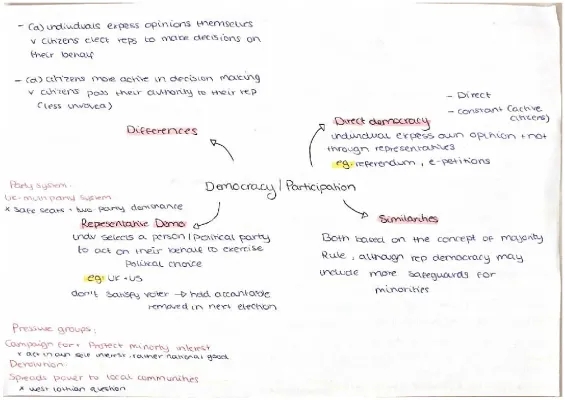 - (d) individuals express opinions themselves
v citizens elect reps to make decisions on
their behalf
- (d) citizens more active in decision making
v citizens pass their authority to their rep
(less involved)
Differences
- Direct
- constant (active
citizens)
Direct democracy
individual express own opinion + not
through representatives
eg: referendum, e-petitions
Democracy/Participation
Party system:
UK - multi party system
x safe seats - two party dominance
Representative Demo
indv selects a person/political party
to act on their behalf to exercise
political choice
eg: UK + US
don't satisfy voter → held accountable
removed in next election
Similarities
Both based on the concept of majority
Rule, although rep democracy may
include more safeguards for
minorities
Pressure groups:
Campaign for + Protect minority interest
x act in own self interest, rather national good
Devolution:
Spreads power to local communities
x west lothian question